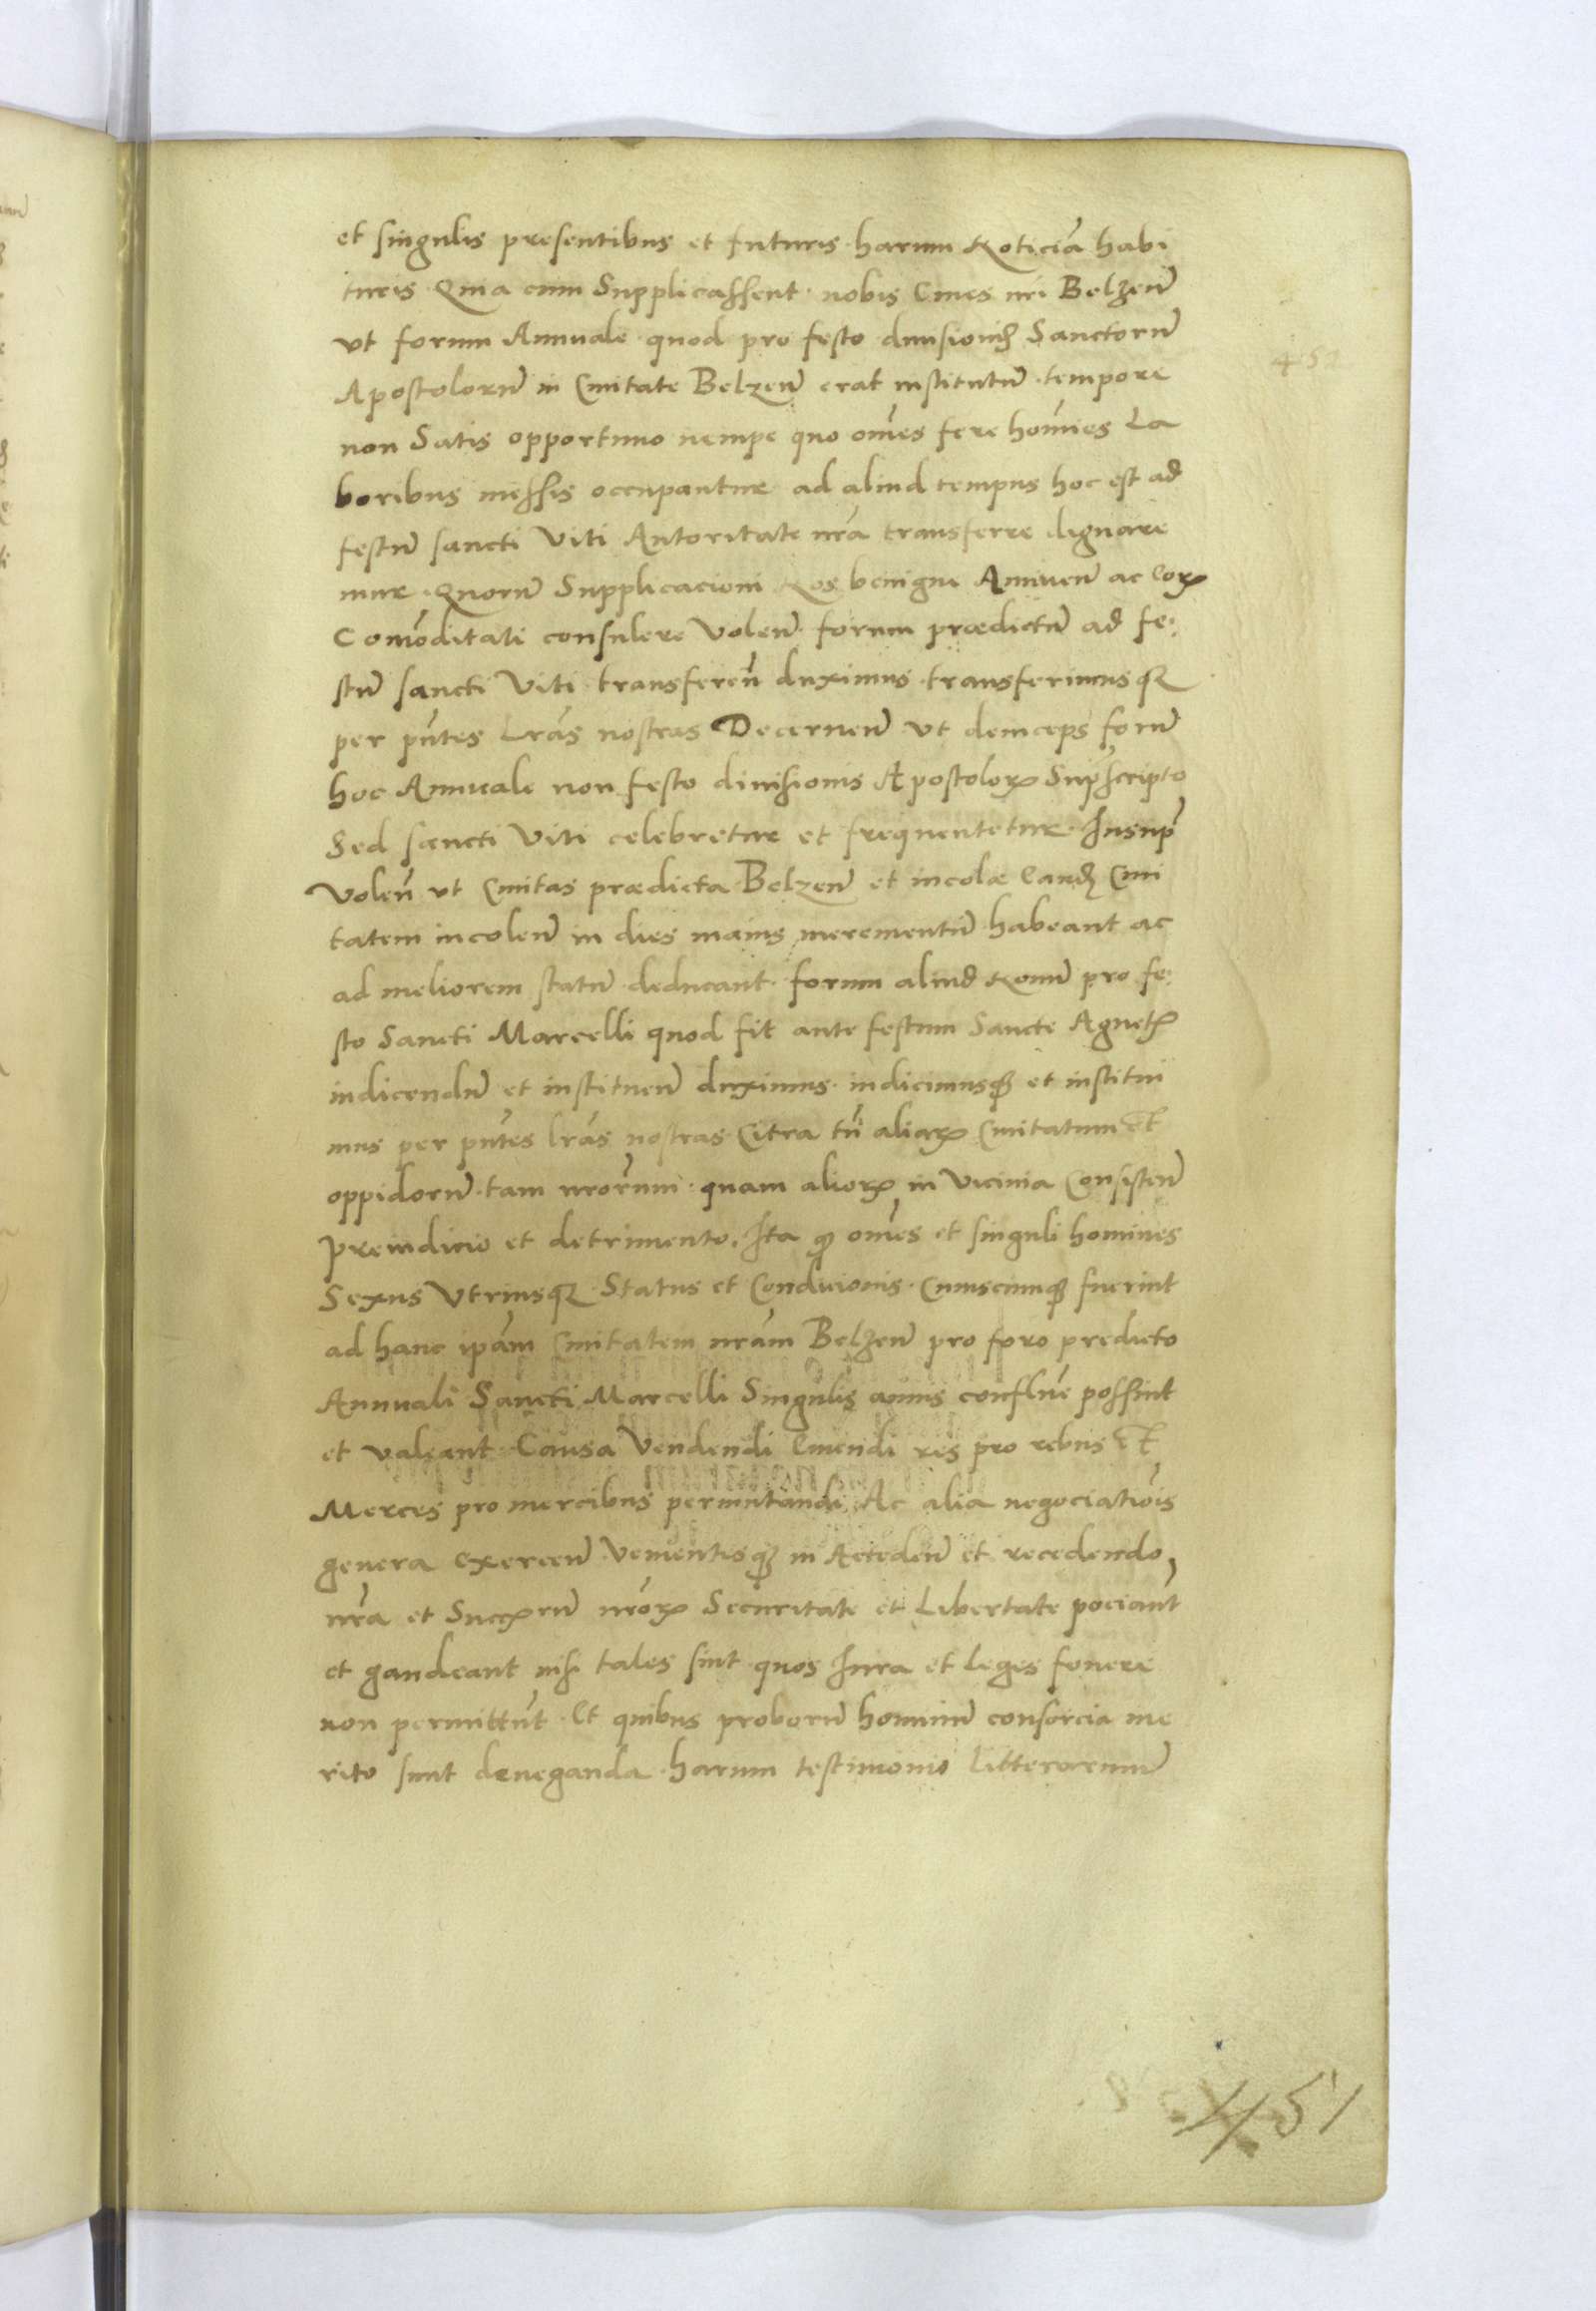 et singulis presentibus et futuris harum Noticiã habi
turis Quia cum Supplicassent nobis Ciues nri Belzeñ
vt forum Annuale quod pro festo diuisionis Sanctorũ
Apostolorũ in Ciuitate Belzeñ erat institutũ tempore
non Satis opportuno nempe quo oẽs fere hoĩes La
boribus messis occupantur ad aliud tempus hoc est ad
festũ sancti Viti Autoritate nrã transferre dignare
mur Quorũ Supplicacioni Nos benigne Annueñ ac eorꝝ
Comõditati consulere Voleñ forum prædictũ ad fe:
stũ sancti Viti transfereñ duximus transferimusqꝫ
per pñtes Lrãs nostras Decerneñ vt deinceps forũ
hoc Annuale non festo diuisionis Apostolorꝝ Supscripto
Sed sancti Viti celebretur et frequentetur Insup
Voleñ vt Ciuitas prædicta Belzeñ et incolæ eandẽ Ciui
tatem incoleñ in dies maius incrementũ habeant ac
ad meliorem statũ deducant forum aliud Nouũ pro fe:
sto Sancti Marcelli quod fit ante festum Sancte Agnetꝭ
indicendũ et institueñ duximus indicimusqꝫ et institui
mus per pñtes lrãs nostras Citra tñ aliarꝝ Ciuitatum et
oppidorũ tam nrõrum quam aliorꝝ in Vicinia Consisteñ
Preiudicio et detrimento. Ita qꝫ oẽs et singuli homines
Sexus Vtriusqꝫ Status et Condicionis Cuiuscunqꝫ fuerint
ad hanc ipãm Ciuitatem nrãm Belzeñ pro foro predicto
Annuali Sancti Marcelli Singulis annis confluẽ possint
et valeant Causa Vendendi Emendi res pro rebus et
Merces pro mercibus permutandi Ac alia negociatiõis
genera exerceñ Venientesqꝫ in Accedeñ et recedendo,
nrã et Succꝝrũ nrõrꝝ Securitate et Libertate pociant
et gaudeant nisi tales sint quos Iura et Leges fouere
non permittũt Et quibus proborũ hominũ consorcia me
rito sunt deneganda harum testimonio litterarum
451
451